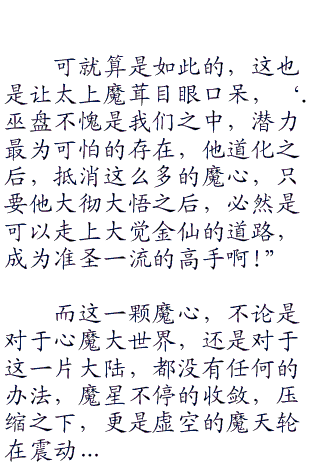 可就算是如此的，这也
是让太上魔茸目眼口呆，‘.
巫盘不愧是我们之中，潜力
最为可怕的存在，他道化之
后，抵消这么多的魔心，只
要他大彻大悟之后，必然是
可以走上大觉金仙的道路，
成为准圣一流的高手啊！”
而这一颗魔心，不论是
对于心魔大世界，还是对于
这一片大陆，都没有任何的
办法，魔星不停的收敛，压
缩之下，更是虚空的魔天轮
在震动...